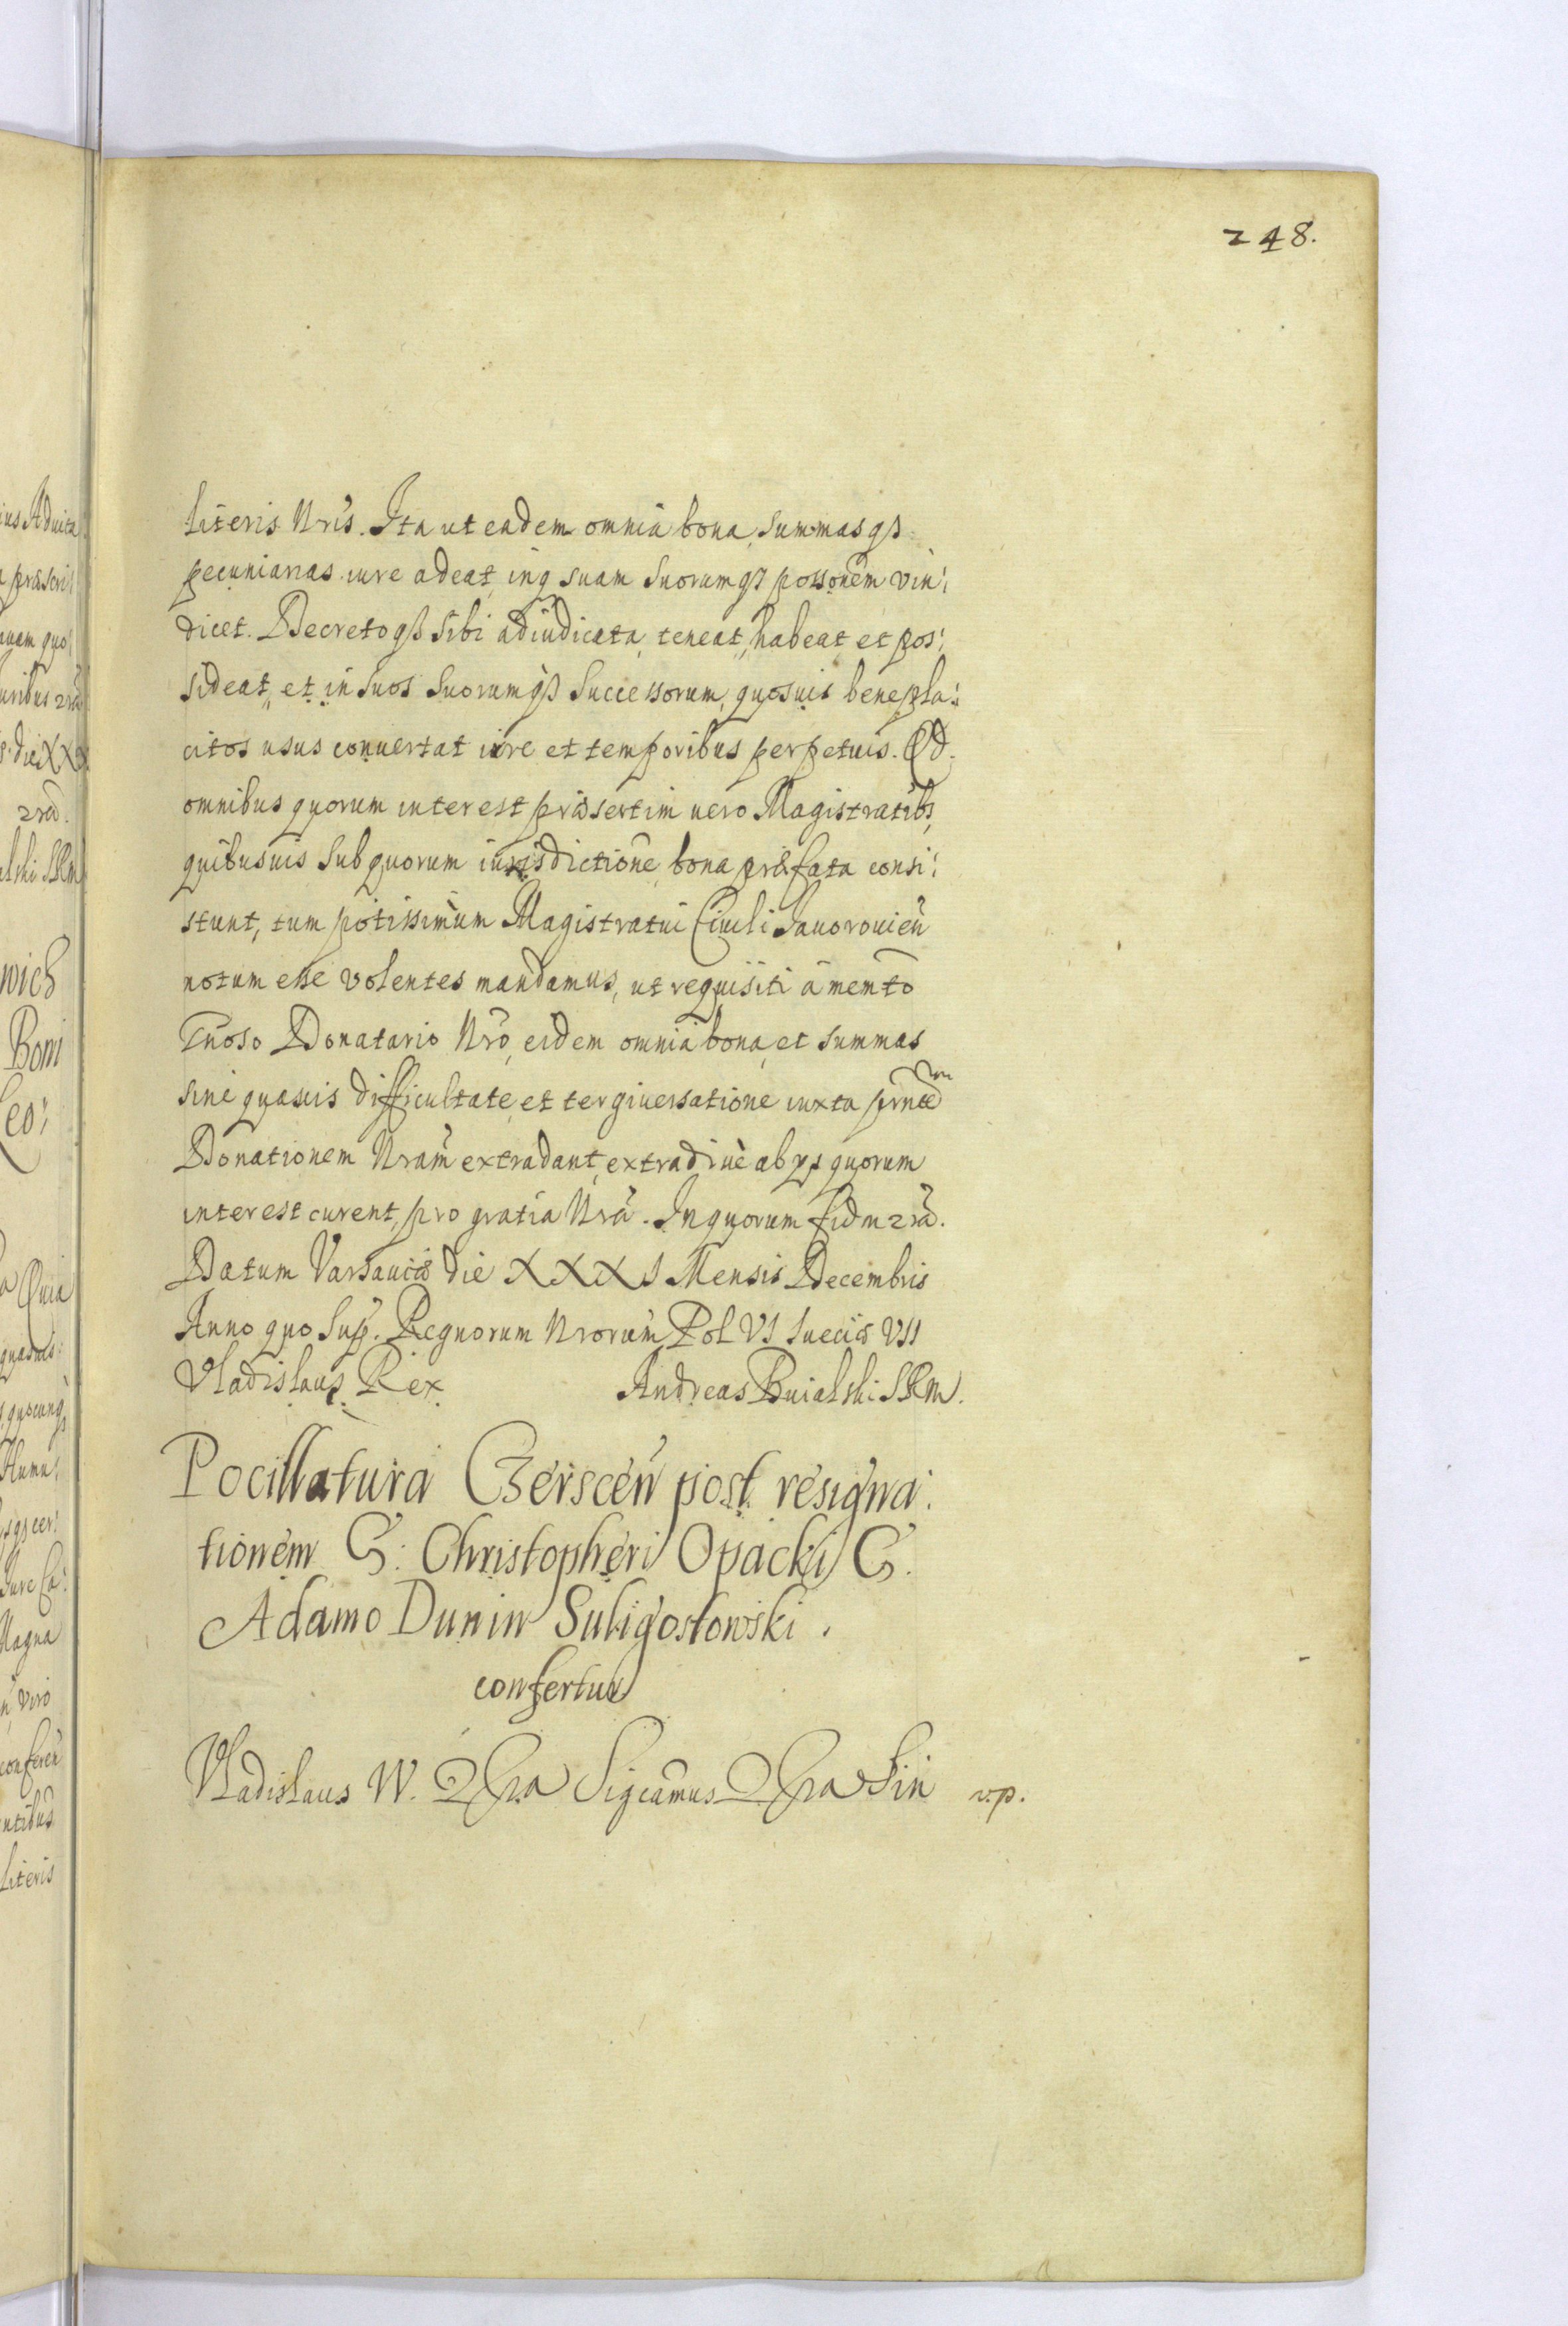 248.
literis Nris. Ita ut eadem omnia bona, summasqꝫ
pecuniarias iure adeat, inq suam suorumqꝫ possonem vin:
dicet. Decretoqꝫ sibi adiudicata, teneat, habeat et pos:
sideat, et in suos suorumqꝫ successorum, quosuis benepla:
citos usus conuertat iure et temporibus perpetuis. Qd.
omnibus quorum interest præsertim uero Magistratibꝫ,
quibusuis sub quorum iurisdictione bona præfata consi:
stunt, tum potissimum Magistratui Ciuili Jauorouien
notum esse volentes mandamus, ut requisiti a mento
Gnoso Donatario Nro, eidem omnia bona, et summas
sine quauis difficultate, et tergiuersatione iuxta prntem
Donationem Nram extradant, extradiuè ab ijs quorum
interest curent, pro gratia Nra. In quorum fidm 2ra.
Datum Varsauiæ die XXXI Mensis Decembris
Anno quo Sup. Regnorum Nrorum Pol VI Sueciæ VII
Vladislaus Rex Andreas Buialski SRM.
Pocillatura Czerscen post resigna:
tionem G: Christopheri Opacki G.
Adamo Dunin Suligostowski.
confertur
Vladislaus IV. 2ra Sigcamus 2ra Sin v.p.
ius Aduita
præscri:
uam quo
uribus 2ra
die XX
2ra.
alski SRM
wich
Boni
Leo:
Quia
quauis
quocunqꝫ
Humn
cer:
Jure Ca:
Magna
viro
conferen
ntibus
Literis